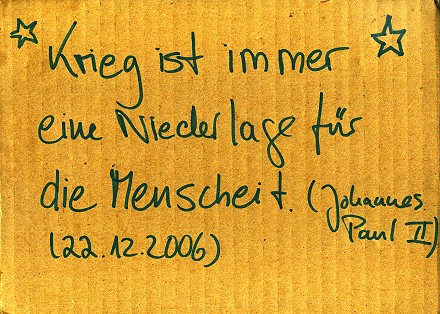 Krieg ist immer
eine Niederlage für
die Menscheit. (Johannes
Paul II)
(22.12.2006)